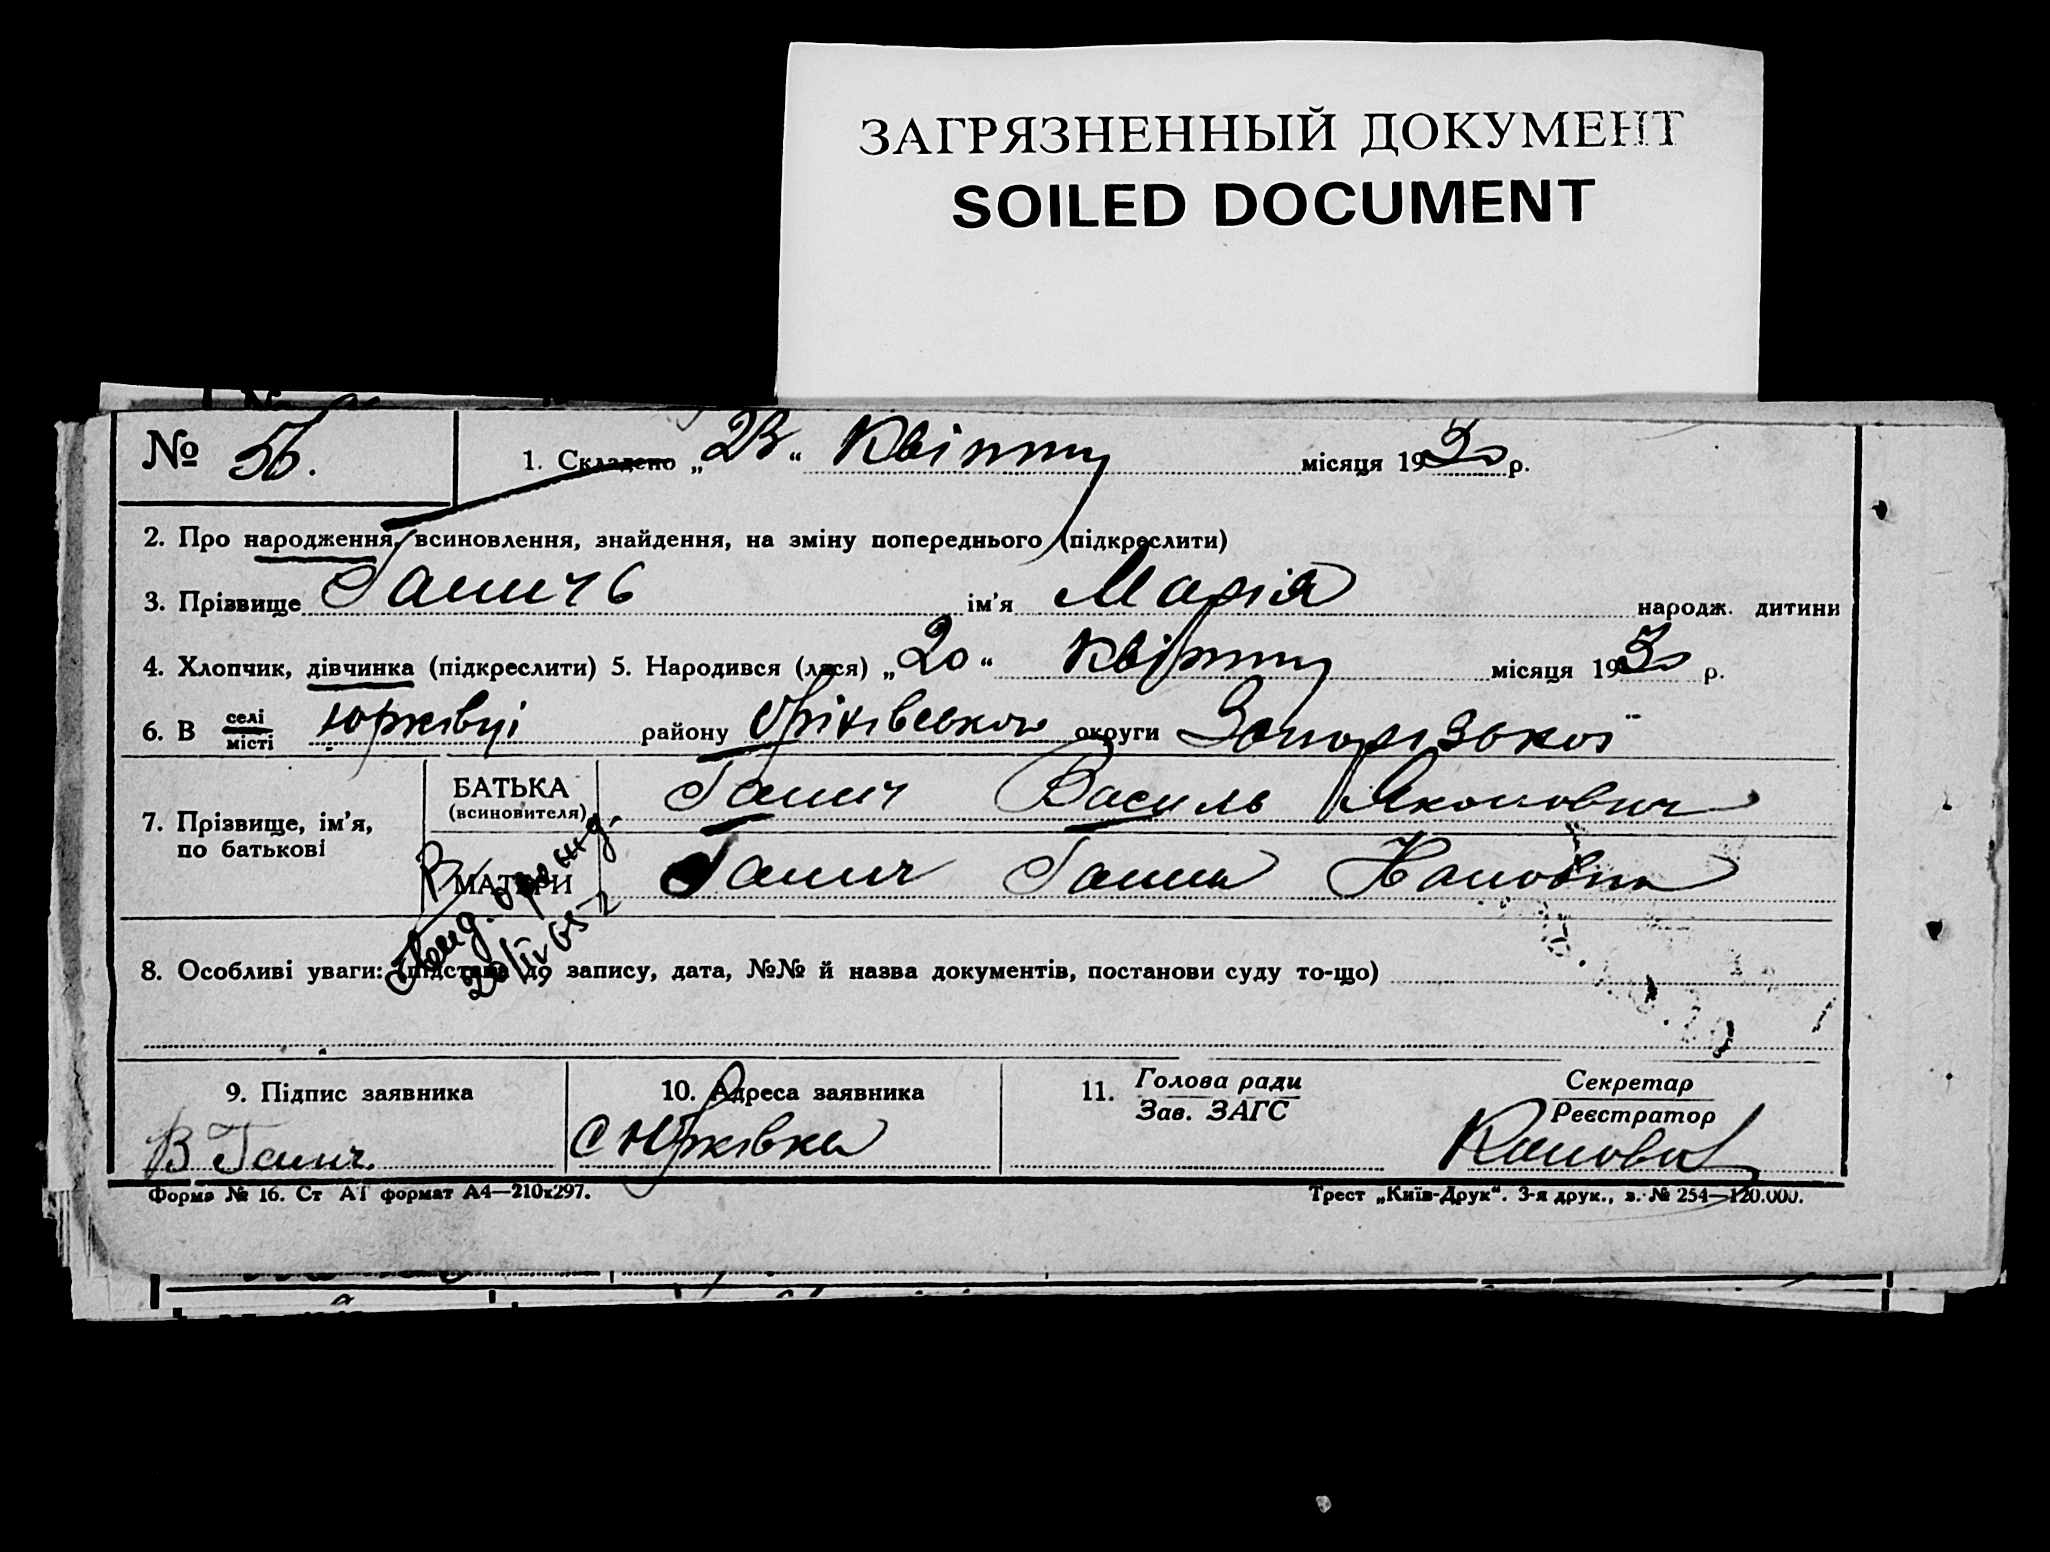 ЗАГРЯЗНЕННЫЙ ДОКУМЕНТ
SOILED DOCUMENT
№ 56. 1. Складено „23“ Квітня місяця 1930 р.
2. Про народження, всиновлення, знайдення, на зміну попереднього (підкреслити)
3. Прізвище Ганичь ім'я Марія народж. дитини
4. Хлопчик, дівчинка (підкреслити) 5. Народився (лася) „20“ Квітня місяця 1930 р.
6. В селі/місті Юрківці району Оріхівського округи Запорізької
7. Прізвище, ім'я, по батькові
БАТЬКА (всиновителя) Ганич Василь Якович
МАТЕРИ Ганич Ганна
8. Особливі уваги: (підстава до запису, дата, №№ й назва документів, постанови суду то-що)
9. Підпис заявника 10. Адреса заявника 11. Голова ради/Зав. ЗАГС Секретар/Реєстратор
В Ганич. с Юрківка
Форма № 16. Ст АТ формат А4—210х297. Трест „Київ-Друк“. 3-я друк., з. № 254—120.000.